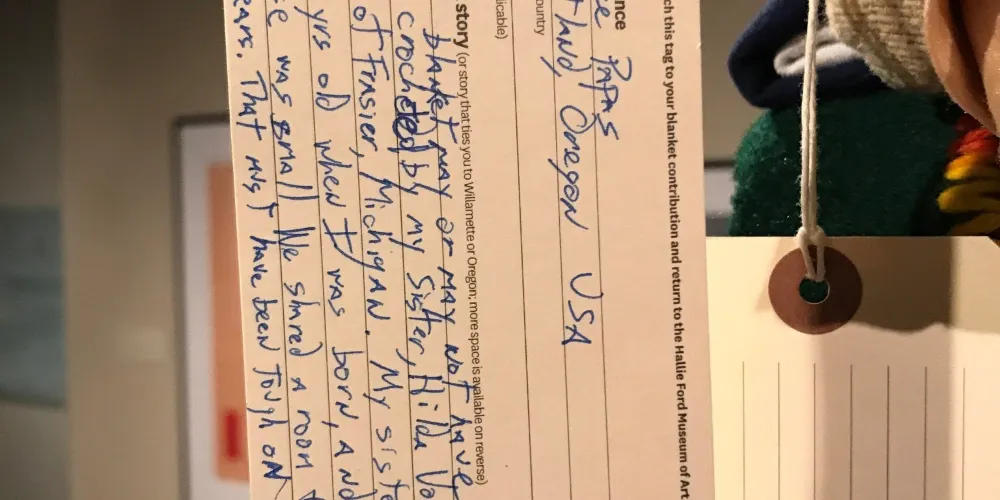 ch this tag to your blanket contribution and return to the Hallie Ford Museum of Art
nce
ee Papas
tland, Oregon USA
ountry
licable)
story (or story that ties you to Willamette or Oregon; more space is available on reverse)
blanket may or may not have
crocheted by my sister, Hilda Vo
of Frasier, Michigan. My siste
yrs old when I was born, and
e was small. We shared a room
ears. That must have been tough on